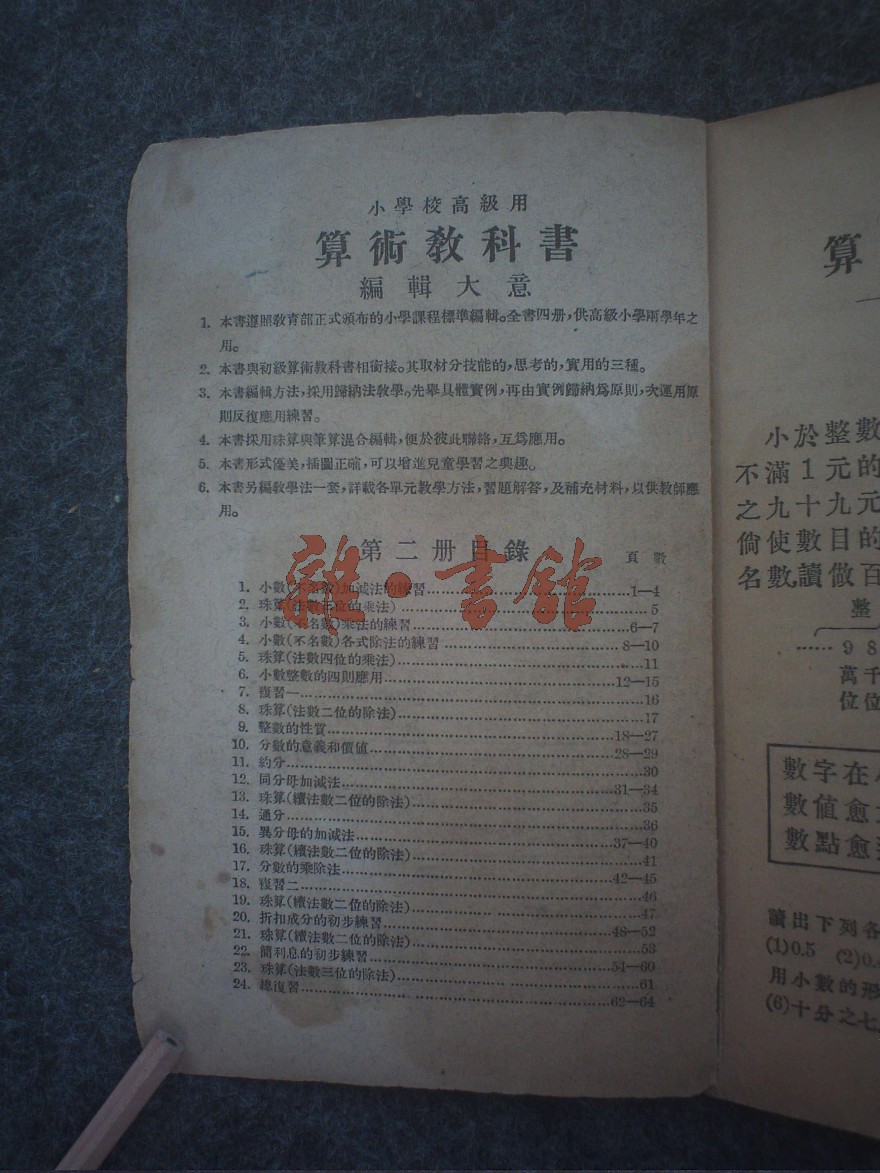 小學校高級用
算術教科書
編輯大意
1. 本書遵照教育部正式頒布的小學課程標準編輯。全書四册，供高級小學兩學年之
用。
2. 本書與初級算術教科書相銜接。其取材分技能的，思考的，實用的三種。
3. 本書編輯方法，採用歸納法教學。先舉具體實例，再由實例歸納爲原則，次運用原
則反復應用練習。
4. 本書採用珠算與筆算混合編輯，便於彼此聯絡，互爲應用。
5. 本書形式優美，插圖正確，可以增進兒童學習之興趣。
6. 本書另編教學法一套，詳載各單元教學方法，習題解答，及補充材料，以供教師應
用。
第二册目錄
頁數
1. 小數(不名數)加減法的練習……1—4
2. 珠算(法數三位的乘法)……5
3. 小數(不名數)乘法的練習……6—7
4. 小數(不名數)各式除法的練習……8—10
5. 珠算(法數四位的乘法)……11
6. 小數整數的四則應用……12—15
7. 復習一……16
8. 珠算(法數二位的除法)……17
9. 整數的性質……18—27
10. 分數的意義和價值……28—29
11. 約分……30
12. 同分母加減法……31—34
13. 珠算(續法數二位的除法)……35
14. 通分……36
15. 異分母的加減法……37—40
16. 珠算(續法數二位的除法)……41
17. 分數的乘除法……42—45
18. 復習二……46
19. 珠算(續法數二位的除法)……47
20. 折扣成分的初步練習……48—52
21. 珠算(續法數二位的除法)……53
22. 簡利息的初步練習……54—60
23. 珠算(法數三位的除法)……61
24. 總復習……62—64
龍·書館
算
小於整數
不滿1元的
之九十九元
倘使數目的
名數，讀做百
整
……9 8
萬千
位位
數字在
數値愈
數點愈
讀出下列各
(1)0.5 (2)0.
用小數的形
(6)十分之七